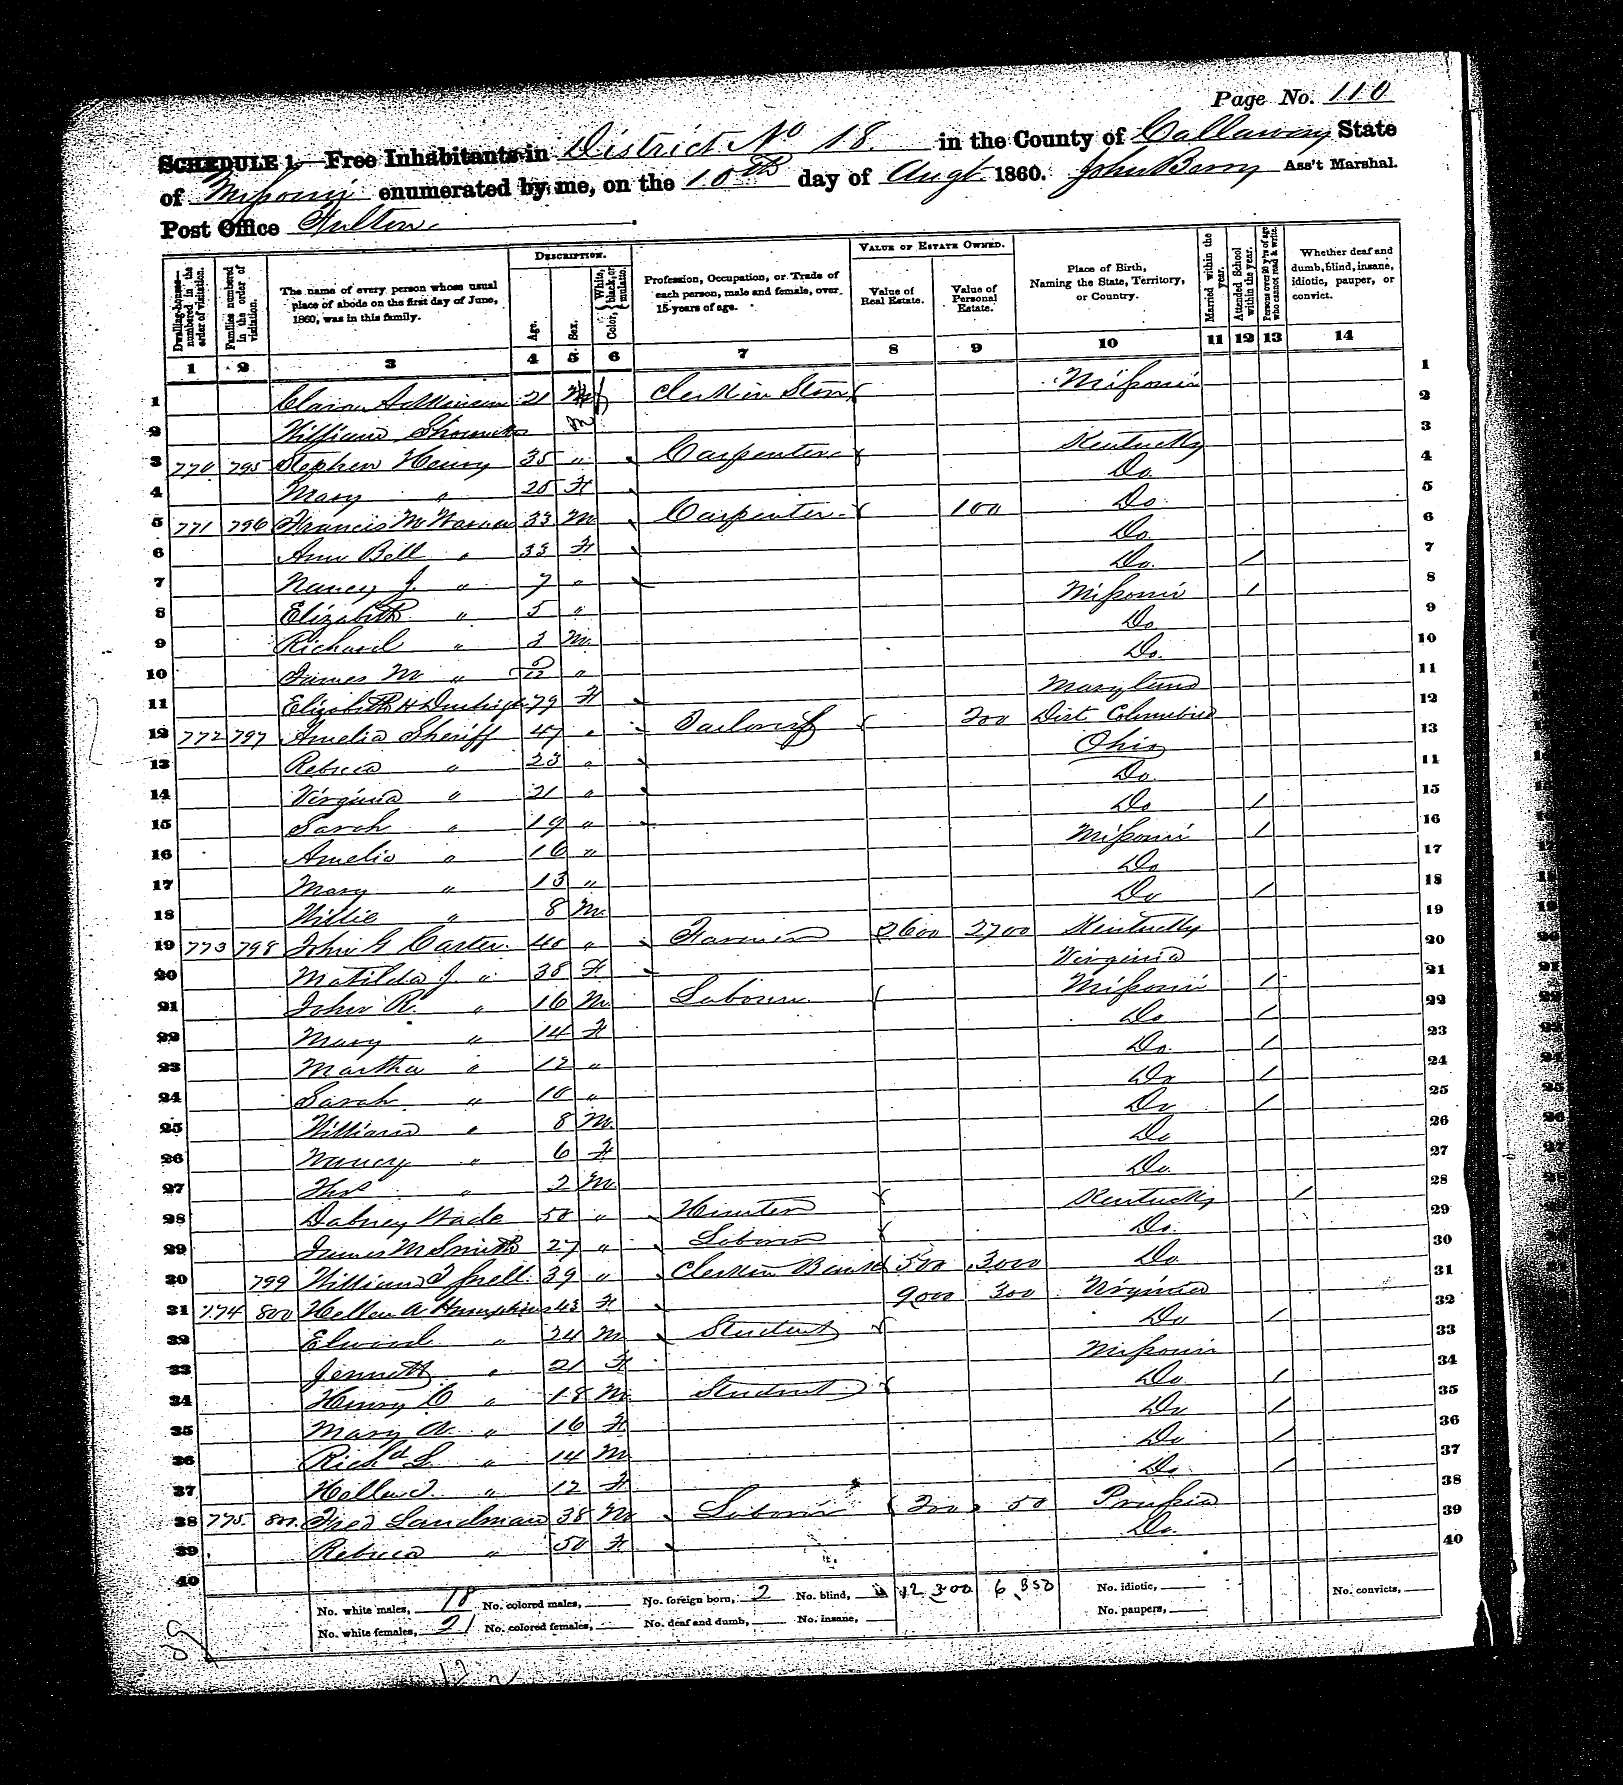 Page No. 110
SCHEDULE 1.—Free Inhabitants in District No 18 in the County of Callaway State
of Missouri enumerated by me, on the 10th day of Augt 1860. John Berry Ass't Marshal.
Post Office Fulton
Dwelling-houses—numbered in the order of visitation.
Families numbered in the order of visitation.
The name of every person whose usual place of abode on the first day of June, 1860, was in this family.
Description.
Age.
Sex.
Color, White, black, or mulatto.
Profession, Occupation, or Trade of each person, male and female, over 15 years of age.
Value of Estate Owned.
Value of Real Estate.
Value of Personal Estate.
Place of Birth, Naming the State, Territory, or Country.
Married within the year.
Attended School within the year.
Persons over 20 y'rs of age who cannot read & write.
Whether deaf and dumb, blind, insane, idiotic, pauper, or convict.
1 2 3 4 5 6 7 8 9 10 11 12 13 14
1 21 Clerk in Store Missouri 1
2 William 2
3 770 795 Stephen Henry 35 " Carpenter Kentucky 3
4 Mary " 20 F Do 4
5 771 796 Francis M Warner 33 M Carpenter 100 Do 5
6 Ann Bell " 33 F Do 6
7 Nancy J. " 7 " Do / 7
8 Elizabeth " 5 " Missouri / 8
9 Richard " 3 M Do 9
10 James M " " Do 10
11 Elizabeth H 79 F Maryland 11
12 772 797 Amelia Sheriff 47 " 200 Dist Columbia 12
13 Rebeca " 23 " Ohio 13
14 Virginia " 21 " Do 11
15 Sarah " 19 " Do / 15
16 Amelia " 16 " Missouri / 16
17 Mary " 13 " Do 17
18 Willie " 8 M Do / 18
19 773 798 John G Carter 40 " Farmer 2600 2700 Kentucky 19
20 Matilda J. " 38 F Virginia 20
21 John R. " 16 M Labourer Missouri / 21
22 Mary " 14 F Do / 22
23 Martha " 12 " Do / 23
24 Sarah " 10 " Do / 24
25 William " 8 M Do / 25
26 Nancy " 6 F Do 26
27 Thos " 2 M Do 27
28 Dabney Wade 50 " Kentucky / 28
29 James M Smith 27 " Labourer Do 29
30 799 William T Snell 39 " Clerk in Bank 500 3000 Do 30
31 774 800 Hellen A Humphries 43 F 9000 300 Virginia 31
32 Edward " 24 M Student Do / 32
33 Jennett " 21 F Missouri 33
34 Henry C " 18 M Student Do / 34
35 Mary A. " 16 F Do / 35
36 Richd L " 14 M Do / 36
37 " 12 F Do / 37
38 775 801 Fred Landman 38 M Labourer 200 50 Prussia 38
39 Rebeca " 50 F Do 39
40 40
No. white males, 18 No. colored males, No. foreign born, 2 No. blind, 12,300 6,350 No. idiotic, No. convicts,
No. white females, 21 No. colored females, No. deaf and dumb, No. insane, No. paupers,